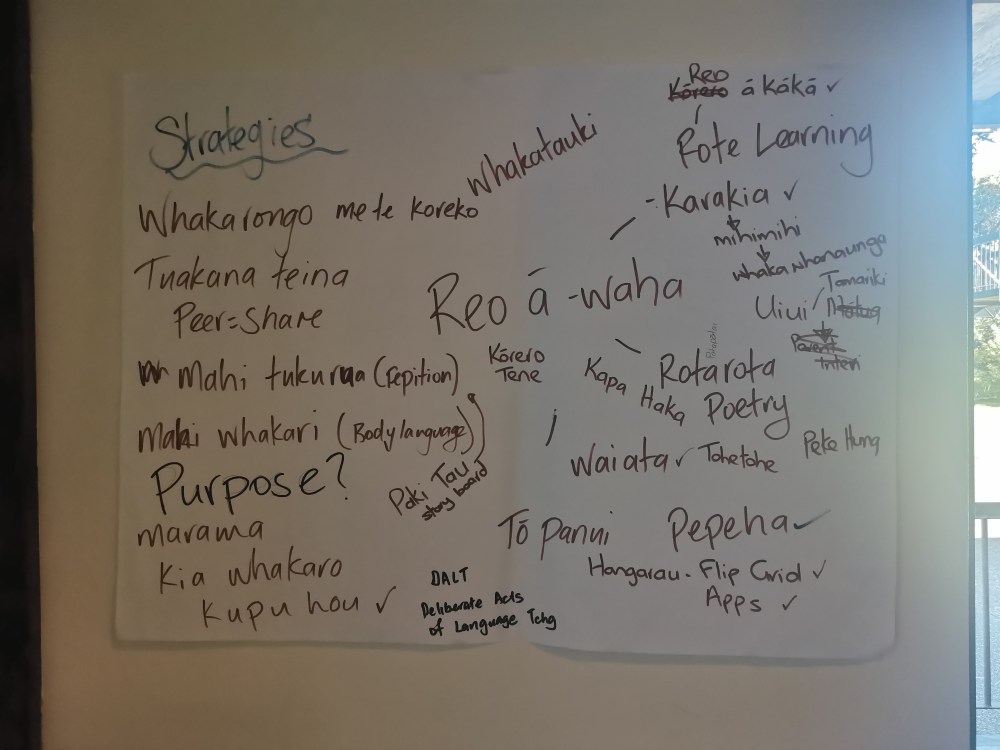 Strategies
Whakarongo me te koreko
Whakatauki
Tuakana teina
Peer = Share
Mahi tukurua (repition)
Mahi whakari (Body language)
Paki Tau
story board
Purpose?
marama
Kia whakaro
Kupu hou ✓
DALT
Deliberate Acts
of Language Tchg
Reo ā-waha
Kōrero
Tene
Reo
Kōrero ā kākā ✓
Rote Learning
- Karakia ✓
mihimihi
whakawhanaunga
Tamariki
Uiui /
Parent
Rotarota
Poetry
Kapa
Haka
Waiata ✓ Tohetohe
Peke Hung
Tō panui
Pepeha ✓
Hangarau - Flip Grid ✓
Apps ✓